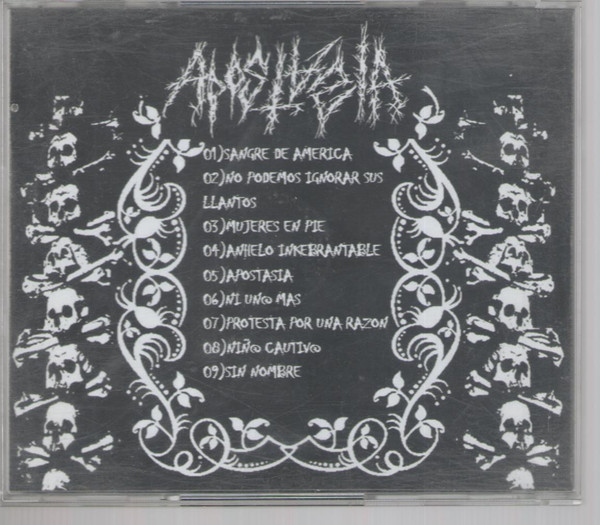 APOSTASIA
01)SANGRE DE AMERICA
02)NO PODEMOS IGNORAR SUS
LLANTOS
03)MUJERES EN PIE
04)ANHELO INKEBRANTABLE
05)APOSTASIA
06)NI UN@ MAS
07)PROTESTA POR UNA RAZON
08)NIÑ@ CAUTIV@
09)SIN NOMBRE